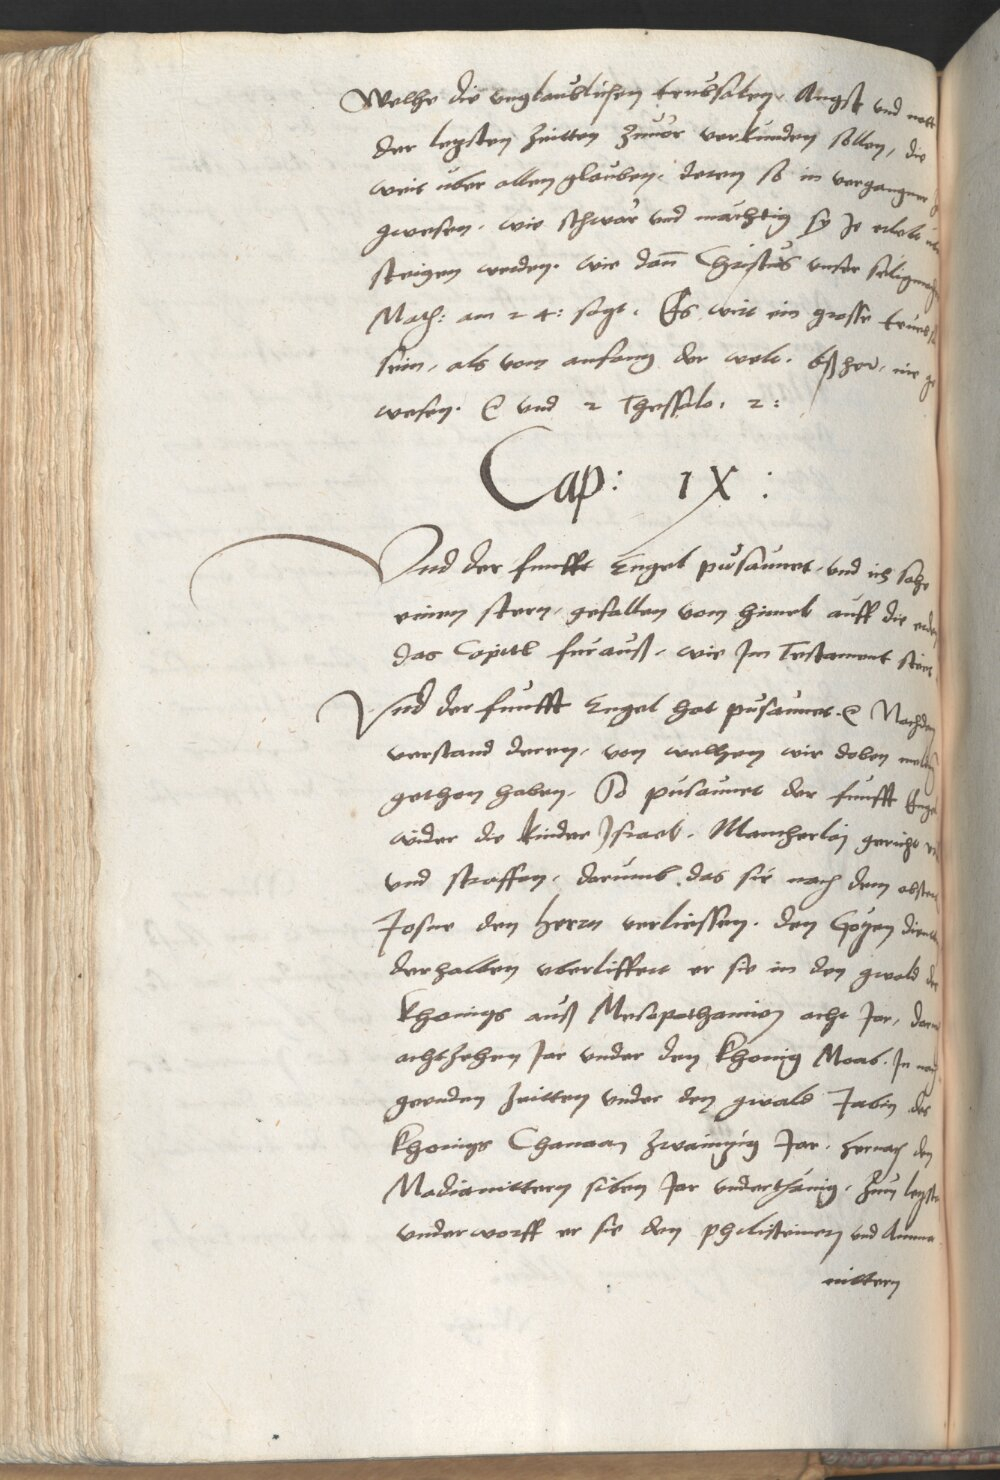 Welche die unglaublichen trubsalen, Angst und nott
der letzsten Zeitten zuvor verkunden sollen, die
weit uber allen glauben, deren so in vergangnen
gwesen, wie schwär und mächtig sy Je erlebt
steigen werden. wie dann Christus unser säligmach
Math: am 24: sagt, Es wirt ein grosse trueb
sein, als vom anfang der welt, bßher, nie ge
wesen. &c und 2 Thessalo. 2:
Cap: IX:
Und der funfft Engel pusaunet, und ich sahe
einen stern, gefallen vom himel auff die erden
das Capitl furauß, wie Im Testament steet
Und der funfft Engel hat pusaunet. &c Nachdem
verstand deren, von welhen wir doben meldung
gethon haben. So pusaunet der funfft Engel
wider die kinder Israel, Mancherlay gericht
und straffen, darumb das sie nach dem abster
Josue den herrn verliessen, den Götzen dienten
derhalben uberliffert er sie in den gwald des
Khonigs auß Mesapothamien acht Jar, darnach
achtzehen Jar under den Khonig Moab. In nach
geenden Zeitten under den gwald Jabin des
Khonigs Chanaan zwaintzig Jar. hernach den
Madianittern siben Jar underthänig, zum letzsten
underworff er sie den philisteinern und Ammo
nittern